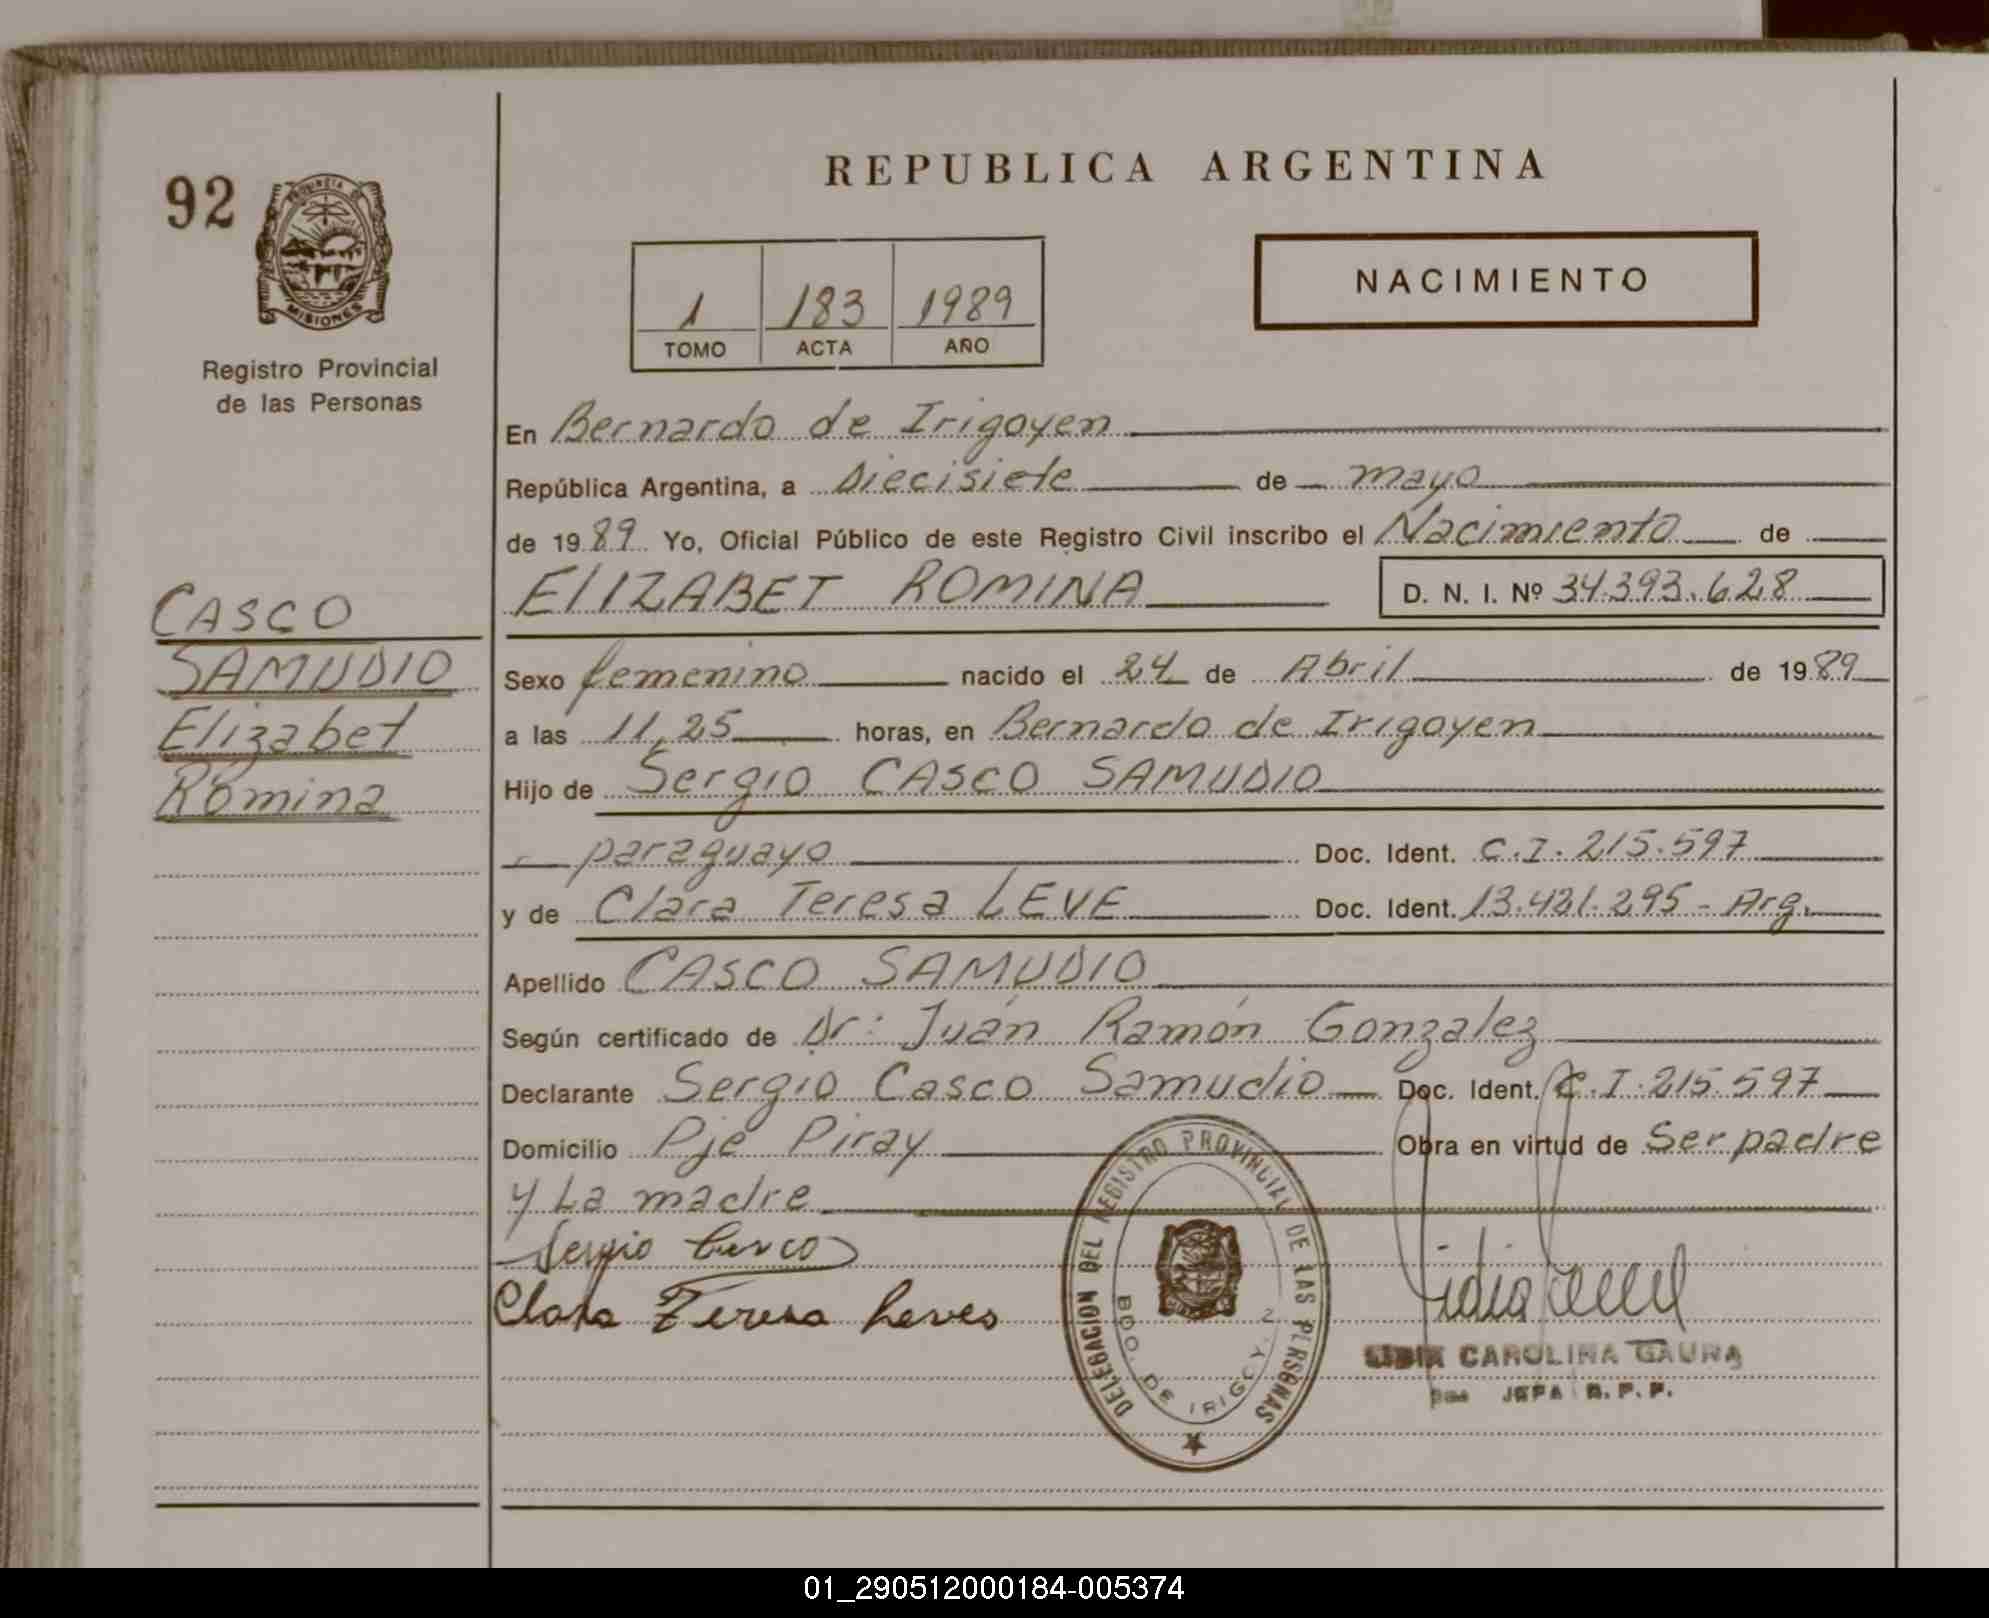 REPUBLICA ARGENTINA
92
PROVINCIA DE
MISIONES
Registro Provincial
de las Personas
NACIMIENTO
1 183 1989
TOMO ACTA AÑO
En Bernardo de Irigoyen
República Argentina, a Diecisiete de mayo
de 1989 Yo, Oficial Público de este Registro Civil inscribo el Nacimiento de
ELIZABET ROMINA D. N. I. Nº 34.393.628
CASCO
SAMUDIO
Elizabet
Romina
Sexo femenino nacido el 24 de Abril de 1989
a las 11,25 horas, en Bernardo de Irigoyen
Hijo de Sergio CASCO SAMUDIO
paraguayo Doc. Ident. C.I. 215.597
y de Clara Teresa LEVE Doc. Ident. 13.421.295 - Arg.
Apellido CASCO SAMUDIO
Según certificado de Dr: Juan Ramón Gonzalez
Declarante Sergio Casco Samudio Doc. Ident. C.I. 215.597
Domicilio Pje Piray Obra en virtud de Ser padre
y La madre
Sergio Casco
Clara Teresa Leves
DELEGACION DEL REGISTRO PROVINCIAL DE LAS PERSONAS
BDO. DE IRIGOY. 2
CAROLINA GAUNA
JEFA R.P.P.
01_290512000184-005374